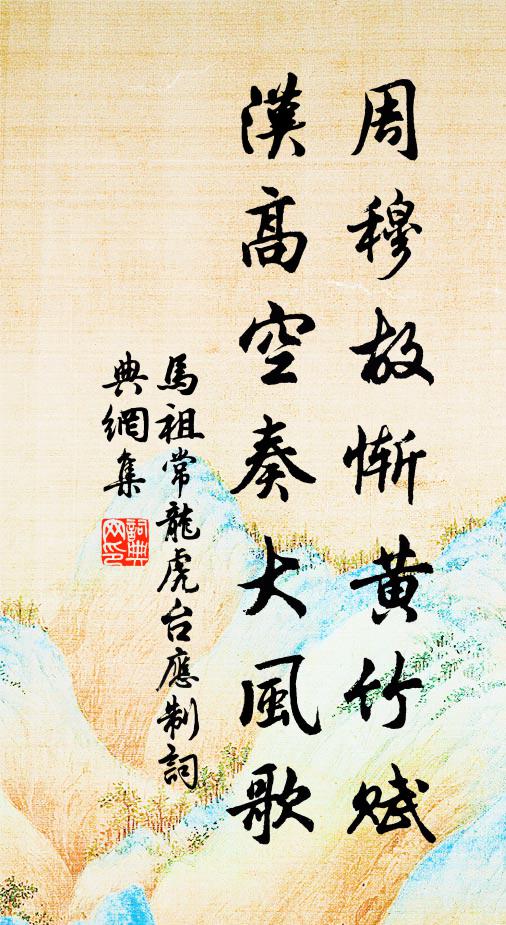 周穆故慚黄竹賦
漢高空奏大風歌
馬祖常龍虎台應制詞
典網集
詞典
网印